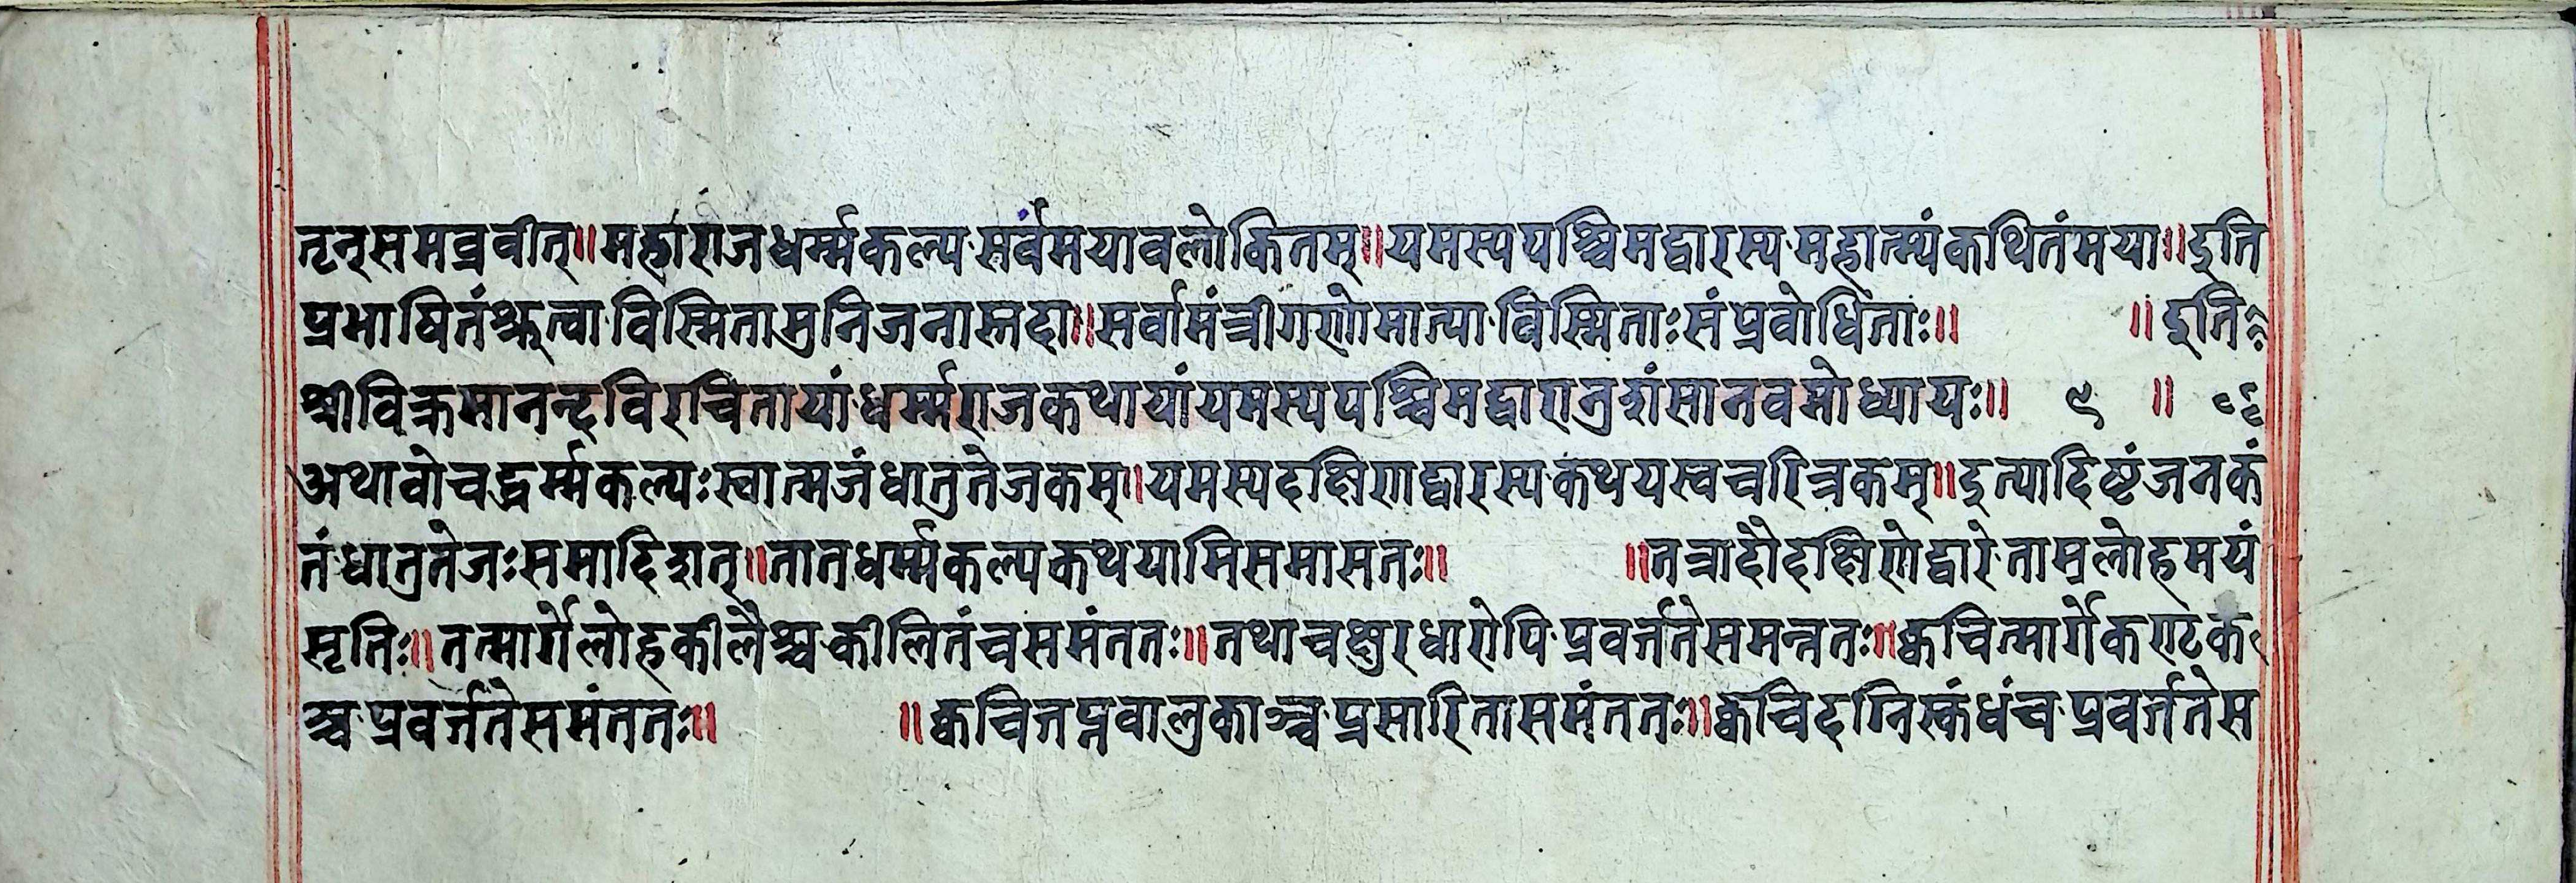 तृन्समब्रवीत्॥महाराजधर्म्मकल्प·सर्वंमयावलोकितम्॥यमस्यपश्चिमद्वारस्य·महात्म्यंकथितंमया॥इति
प्रभाषितंश्रुत्वा·विस्मितामुनिजनास्तदा॥सर्वामंत्रीगणोमात्या·विस्मिताःसंप्रवोधिताः॥ ॥इति
श्रीविक्रमानन्दविरचितायां·धर्म्मराजकथायांयमस्यपश्चिमद्वारानुशंसानवमोध्यायः॥ ९ ॥
अथावोचद्धर्म्मकल्पःस्वात्मजंधातुतेजकम्॥यमस्यदक्षिणद्वारस्य·कथयस्वचरित्रकम्॥इत्यादिष्टंजनकं
तं·धातुतेजःसमादिशत्॥तातधर्म्मकल्पकथयामिसमासतः॥ ॥तत्रादौदक्षिणेद्वारे·ताम्रलोहमयं
सृतिः॥तत्मार्गेलोहकीलैश्च·कीलितंचसमंततः॥तथाचक्षुरधारोपि·प्रवर्त्ततेसमन्ततः॥क्वचित्मार्गेकण्टक
श्च·प्रवर्त्ततेसमंततः॥ ॥क्वचित्तप्तवालुकाञ्च·प्रसारितासमंततः॥क्वचिदग्निस्कंधंच·प्रवर्त्ततेस